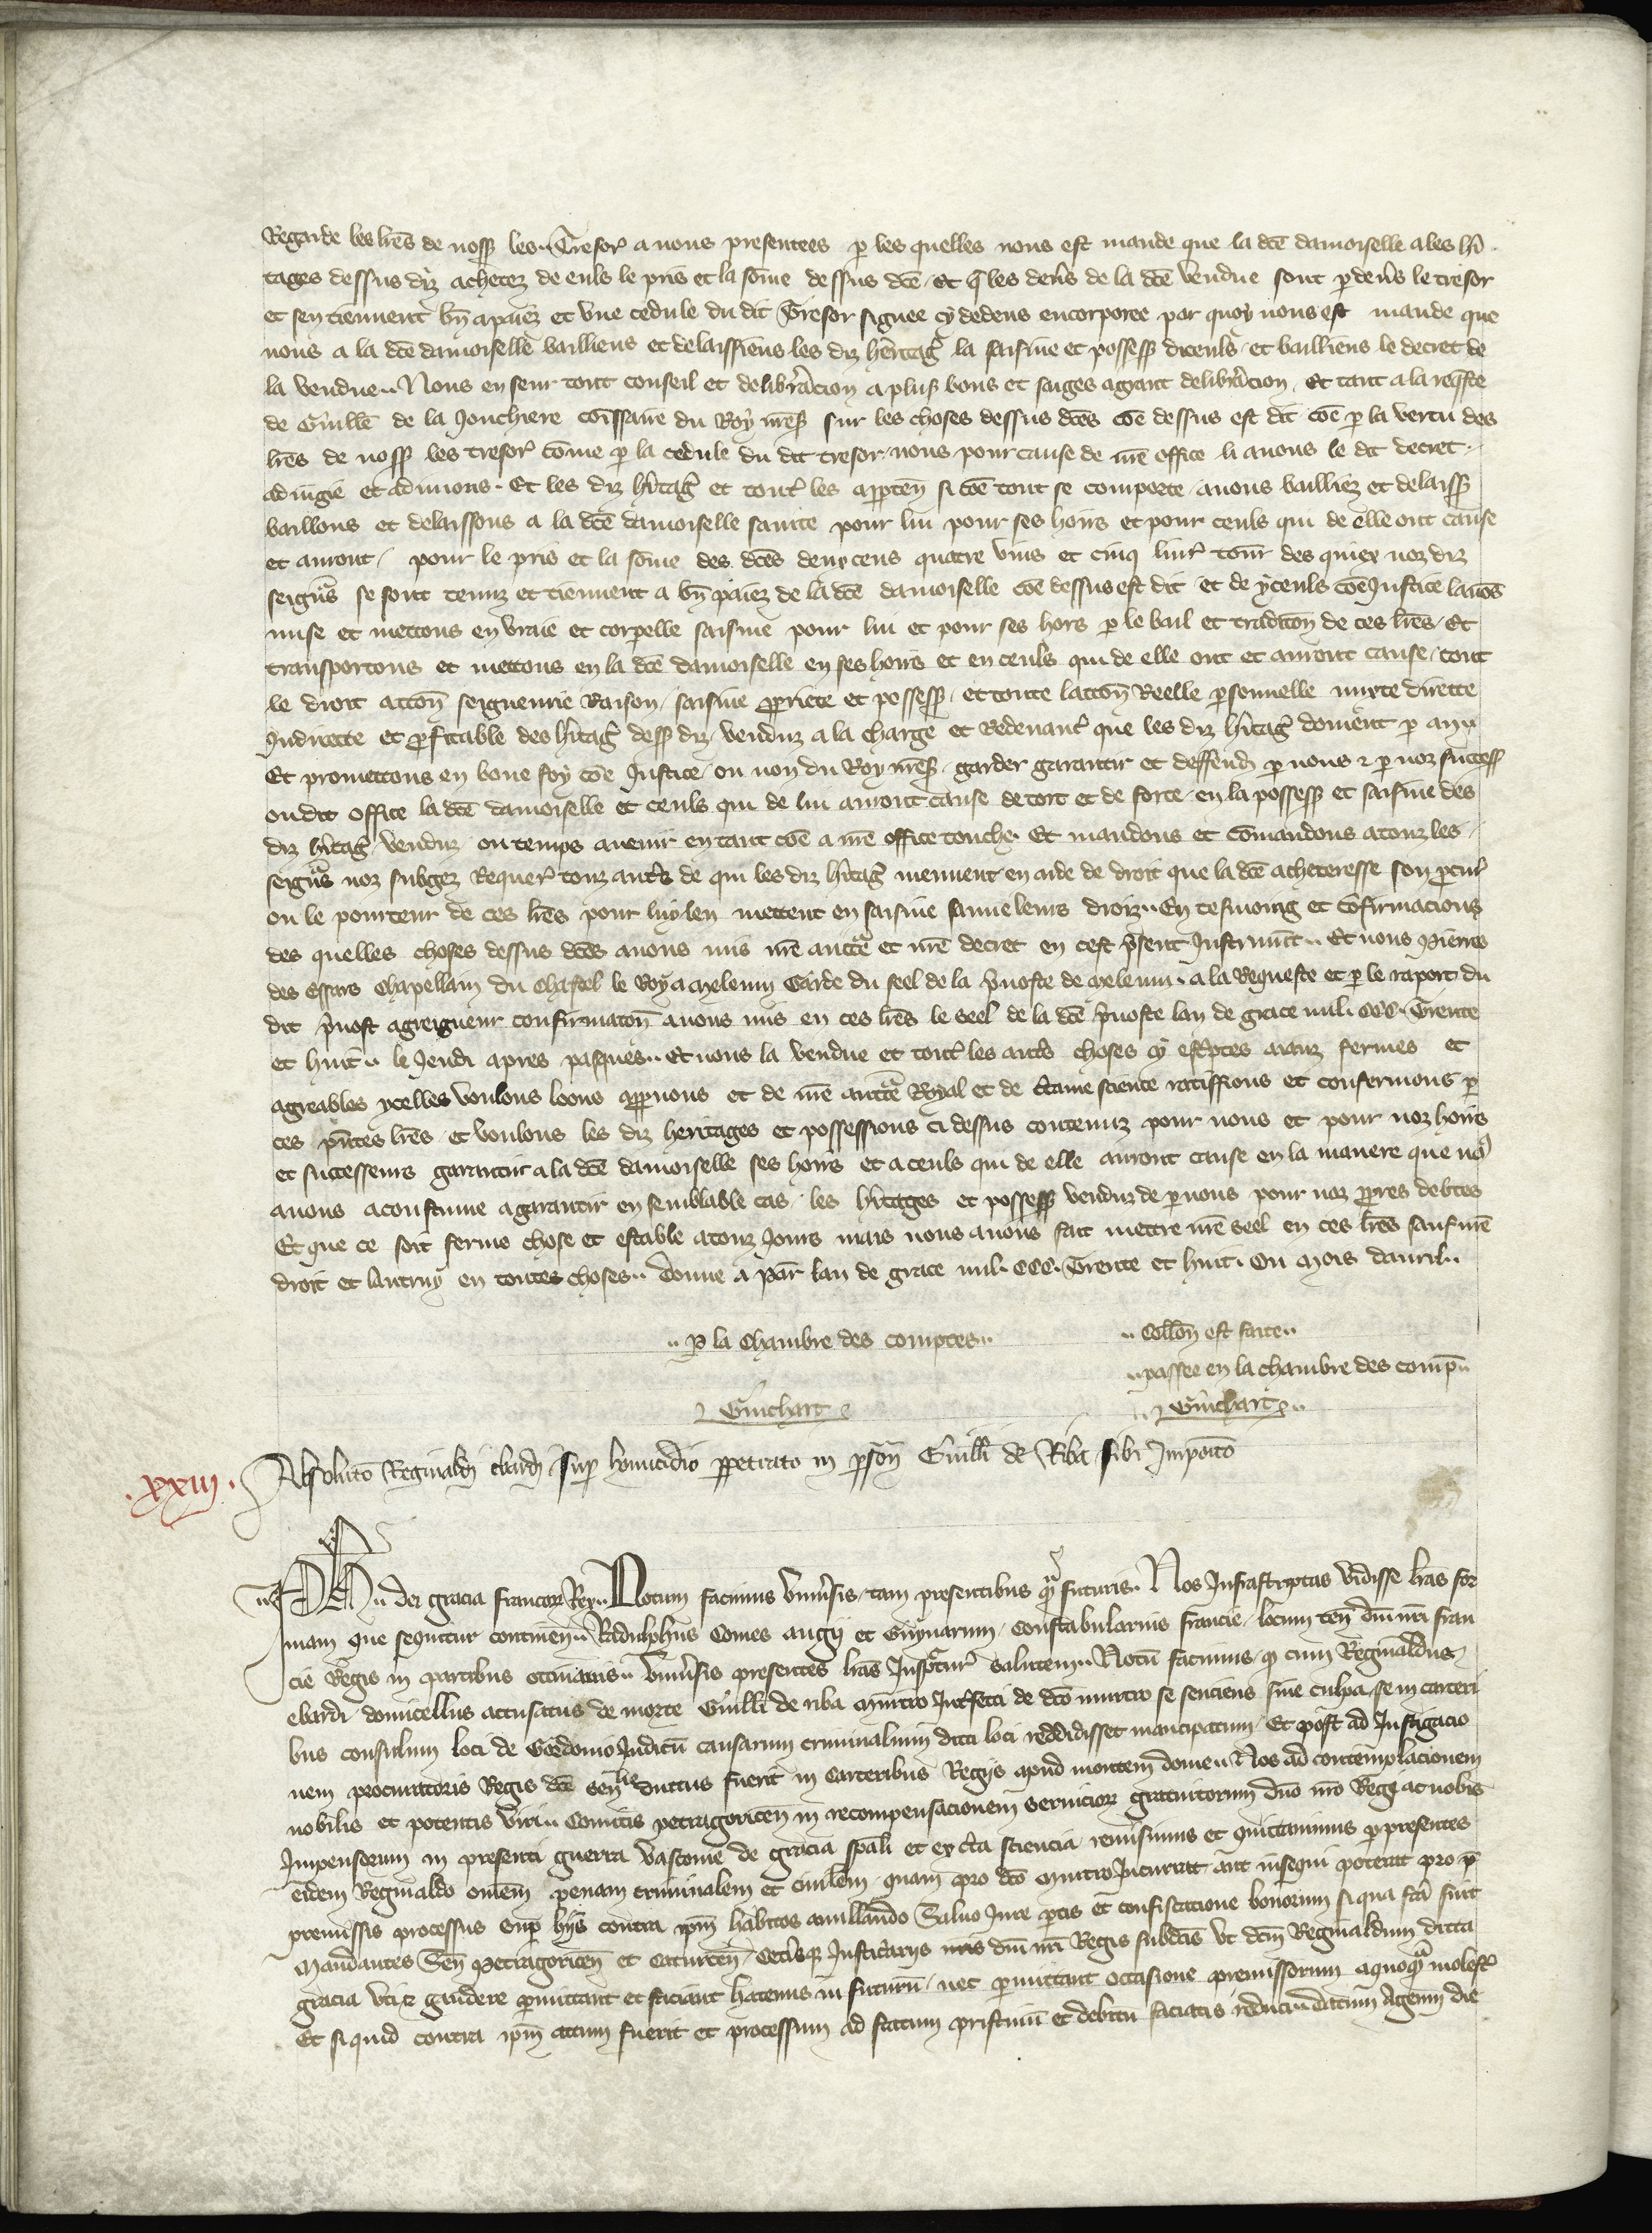 Regarde les lr̃es de noss̃ les Tresor̃ a nous presentees p̱ les quelles nous est mande que la dc̃e damoiselle a les hr̃i
tages dessus diz achetez de euls le pris et la sõme dessus dc̃e. Et q̃ les den̄s de la dc̃e vendue sont p̱ deuers le tresor
et sen tiennent bñ apaiez et vne cedule du dit Tresor signee cy dedens encorporee par quoy nous est mande que
nous a la dc̃e damoiselle bailliens et delaissiens les diz heritag̃ la saisine et possess̃ diceuls et bailliens le decret de
la vendue.. Nous en seur tout conseil et deliberacion a plus̃ bons et saiges ayant deliberacion. Et tant a la req̃ste
de Guill̃e de la Jonchiere du Roy nr̃es̃ sur les choses dessus dc̃es cõe dessus est dit cõe p̱ la vertu des
lr̃es de noss̃ les tresor̃ cõme p̱ la cedule du dit tresor nous pour cause de nr̃e office li auons le dit decret
adiugie et adiuions. Et les diz hr̃itag̃ et tout̃ les app̱ten̄ si cõe tout se comporte auons bailliez et delaiss̃
baillons et delaissons a la dc̃e damoiselle saincte pour lui pour ses hoirs et pour ceuls qui de elle ont cause
et auront, pour le pris et la sõme des dc̃es deux cens quatre vins et cinq liur̃ tour̃ des quiex noz diz
seigñrs se sont tenuz et tiennent a bñ paiez de la dc̃e damoiselle cõe dessus est dit et de yceuls cõe Justice lauõs
mise et mettons en vraie et corporelle saisine pour lui et pour ses hoirs p̱ le bail et tradic̃on de ces lr̃es. Et
transportons et mettons en la dc̃e damoiselle en ses hoirs et en ceuls qui de elle ont et auront cause tout
le droit acc̃on seigneurie Raison, saisine pp̃riete et possess̃. et toute lacc̃on Reelle p̱sonnelle mixte directe
Indirecte et p̱fitable des hr̃itag̃ dess̃ diz venduz a la charge et Redeuanc̃ que les diz hr̃itag̃ doiuent p̱ an
Et promettons en bone foy cõe Justice ou non du Roy nr̃es̃ garder garantir et deffend̃ p̱ nous ⁊ p̱ noz success̃
ou dit office la dc̃e damoiselle et ceuls qui de lui auront cause de tort et de force en la possess̃ et saisine des
diz hr̃itag̃ venduz ou temps auenir en tant cõe a nr̃e office touche. Et mandons et cõmandons a touz les
seigñrs noz subgez Requer̃ touz autr̃s de qui les diz hr̃itag̃ mennent en aide de droit que la dc̃e acheteresse son p̱cur̃
ou le porteur de ces lr̃es pour luy len mettent en saisine sauue leurs droiz.. En tesmoing et cõfirmacions
des quelles choses dessus dc̃es auons mis nr̃e aucc̃te et nr̃e decret en cest p̃sent Instrumt̃.. Et nous Pierres
des essars Chapellain du Chastel le Roy a Meleun Garde du seel de la p̃uoste de Meleun. a la Requeste et p̱ le raport du
dit p̃uost a greigneur confirmac̃on auons mis en ces lr̃es le seel de la dc̃e p̃uoste lan de grace mil. CCC. Trente
et huit.. le Jeudi apres pasques.. Et nous la vendue et tout̃ les autr̃s choses cy esc̃ptes aianz fermes et
agreables ycelles voulons loons app̱uons et de nr̃e aucc̃te Royal et de c̃taine science ratiffions et confermons p̱
ces p̃ntes lr̃es. et voulons les diz heritages et possessions ci dessus contenuz pour nous et pour noz hoirs
et successeurs garantir a la dc̃e damoiselle ses hoirs et a ceuls qui de elle auront cause en la maniere que noꝰ
auons acoustume a garantir en semblable cas. les hr̃itages et possess̃ venduz de p̱ nous pour noz pp̃res debtes
Et que ce soit ferme chose et estable a touz Jours mais nous auons fait mettre nr̃e seel en ces lr̃es sauf nr̃e
droit et lautruy en toutes choses.. Donne a Par̃ lan de grace mil. CCC. Trente et huit. Ou Mois dauril..
.. P̱ la Chambre des comptes..
.. Coll̃on est faite..
.. passee en la chambre des comp̃..
Guichart
.. Guichart ..
.xxiii. Absoluc̃o Reginaldi ebardi sup̱ homicidio pp̱etrato in p̱sõn Guill̃i de Riba sibi Imposito
Ph̃ .. dei gracia francoꝝ Rex.. Notum facimus vniu̾sis, tam presentibus q̃ futuris. Nos Infrascriptas vidisse lr̃as for
mam que sequitur continen̄.. Radulphus Comes augi et Guynarum, Constabularius francie, locum ten̄ dñi nr̃i fran
cie Regis in partibus occitanis.. vniu̾sis presentes lr̃as Inspectur̃ salutem.. Notũ facimus, q̱ cum Reginaldus
ebardi domicellus accusatus de morte Guill̃i de riba murtro Int̾fecti de dc̃o murtro se senciens sine culpa, se in carceri
bus consulum loci de Gordonio Judicũ causarum criminalium dicti loci reddidisset mancipatum, Et post ad Instigacio
nem procuratoris Regis dc̃e sen̄lie ductus fuerit in carceribus Regiis apud montem dome.. Nos ad contemplacionem
nobilis et potentis viri.. Comitis petragoricen̄ in recompensacionem seruicioꝝ gratuitorum dño nr̃o Rege ac nobis
Impensorum in presenti guerra vasconie de gracia sp̃ali et ex c̃ta sciencia remisimus et quittauimus p̱ presentes
eidem Reginaldo omẽm penam criminalem et ciuilem, quam pro dc̃o murtro Incurrit aut insequi poterat pro p̃
premissis processus sup̱ hijs contra ip̃m habitos anullando Saluo Jure p̱tis et confiscacione bonorum si qua fc̃a sint
Mandantes Sen̄ Petragoricen̄ et Caturcen̄, Cet̾isque Justiciarijs nr̃is dñi nr̃i Regis subdc̃is vt dc̃m Reginaldum dicta
gracia vti ⁊ gaudere p̱mittant et faciant hactenus in futurũ, nec p̱mittant occasione premissorum a quoq̃ molest̃
Et si quid contra ip̃m actum fuerit et processum ad statum pristinũ et debitũ faciatis reduci.. Datum Agenni die